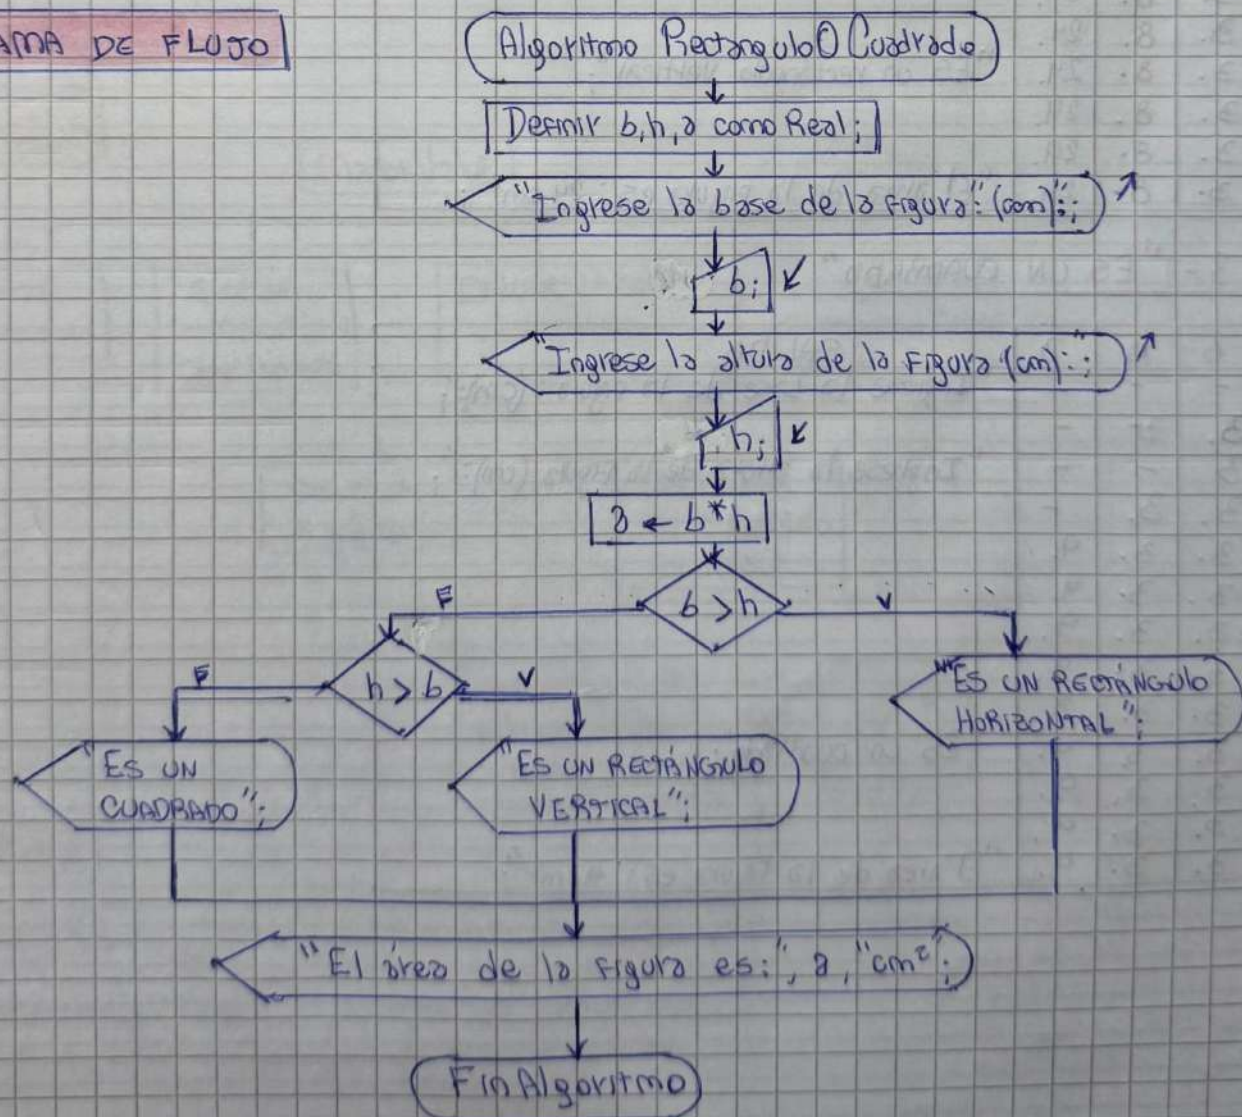 AMA DE FLUJO
Algoritmo RectanguloOCuadrado
Definir b,h,a como Real;
"Ingrese la base de la figura: (cm):";
b;
"Ingrese la altura de la Figura (cm):";
h;
a ← b*h
b > h
F
V
h > b
F
V
"ES UN RECTÁNGULO
HORIZONTAL";
"ES UN
CUADRADO";
"ES UN RECTÁNGULO
VERTICAL";
"El área de la figura es:", a, "cm²";
FinAlgoritmo